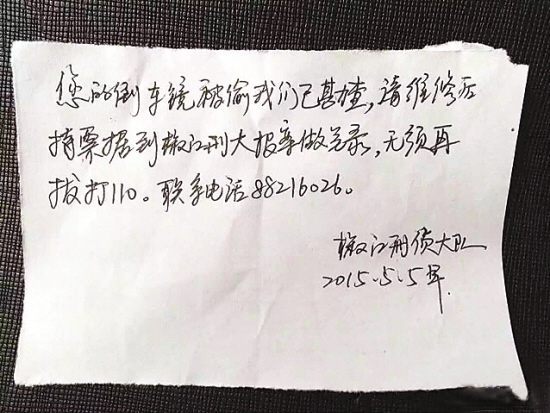 您的倒车镜被偷我们已甚查，请维修后
持票据到椒江刑大报案做笔录，无须再
拔打110。联系电话88216026。
椒江刑侦大队
2015.5.5早.